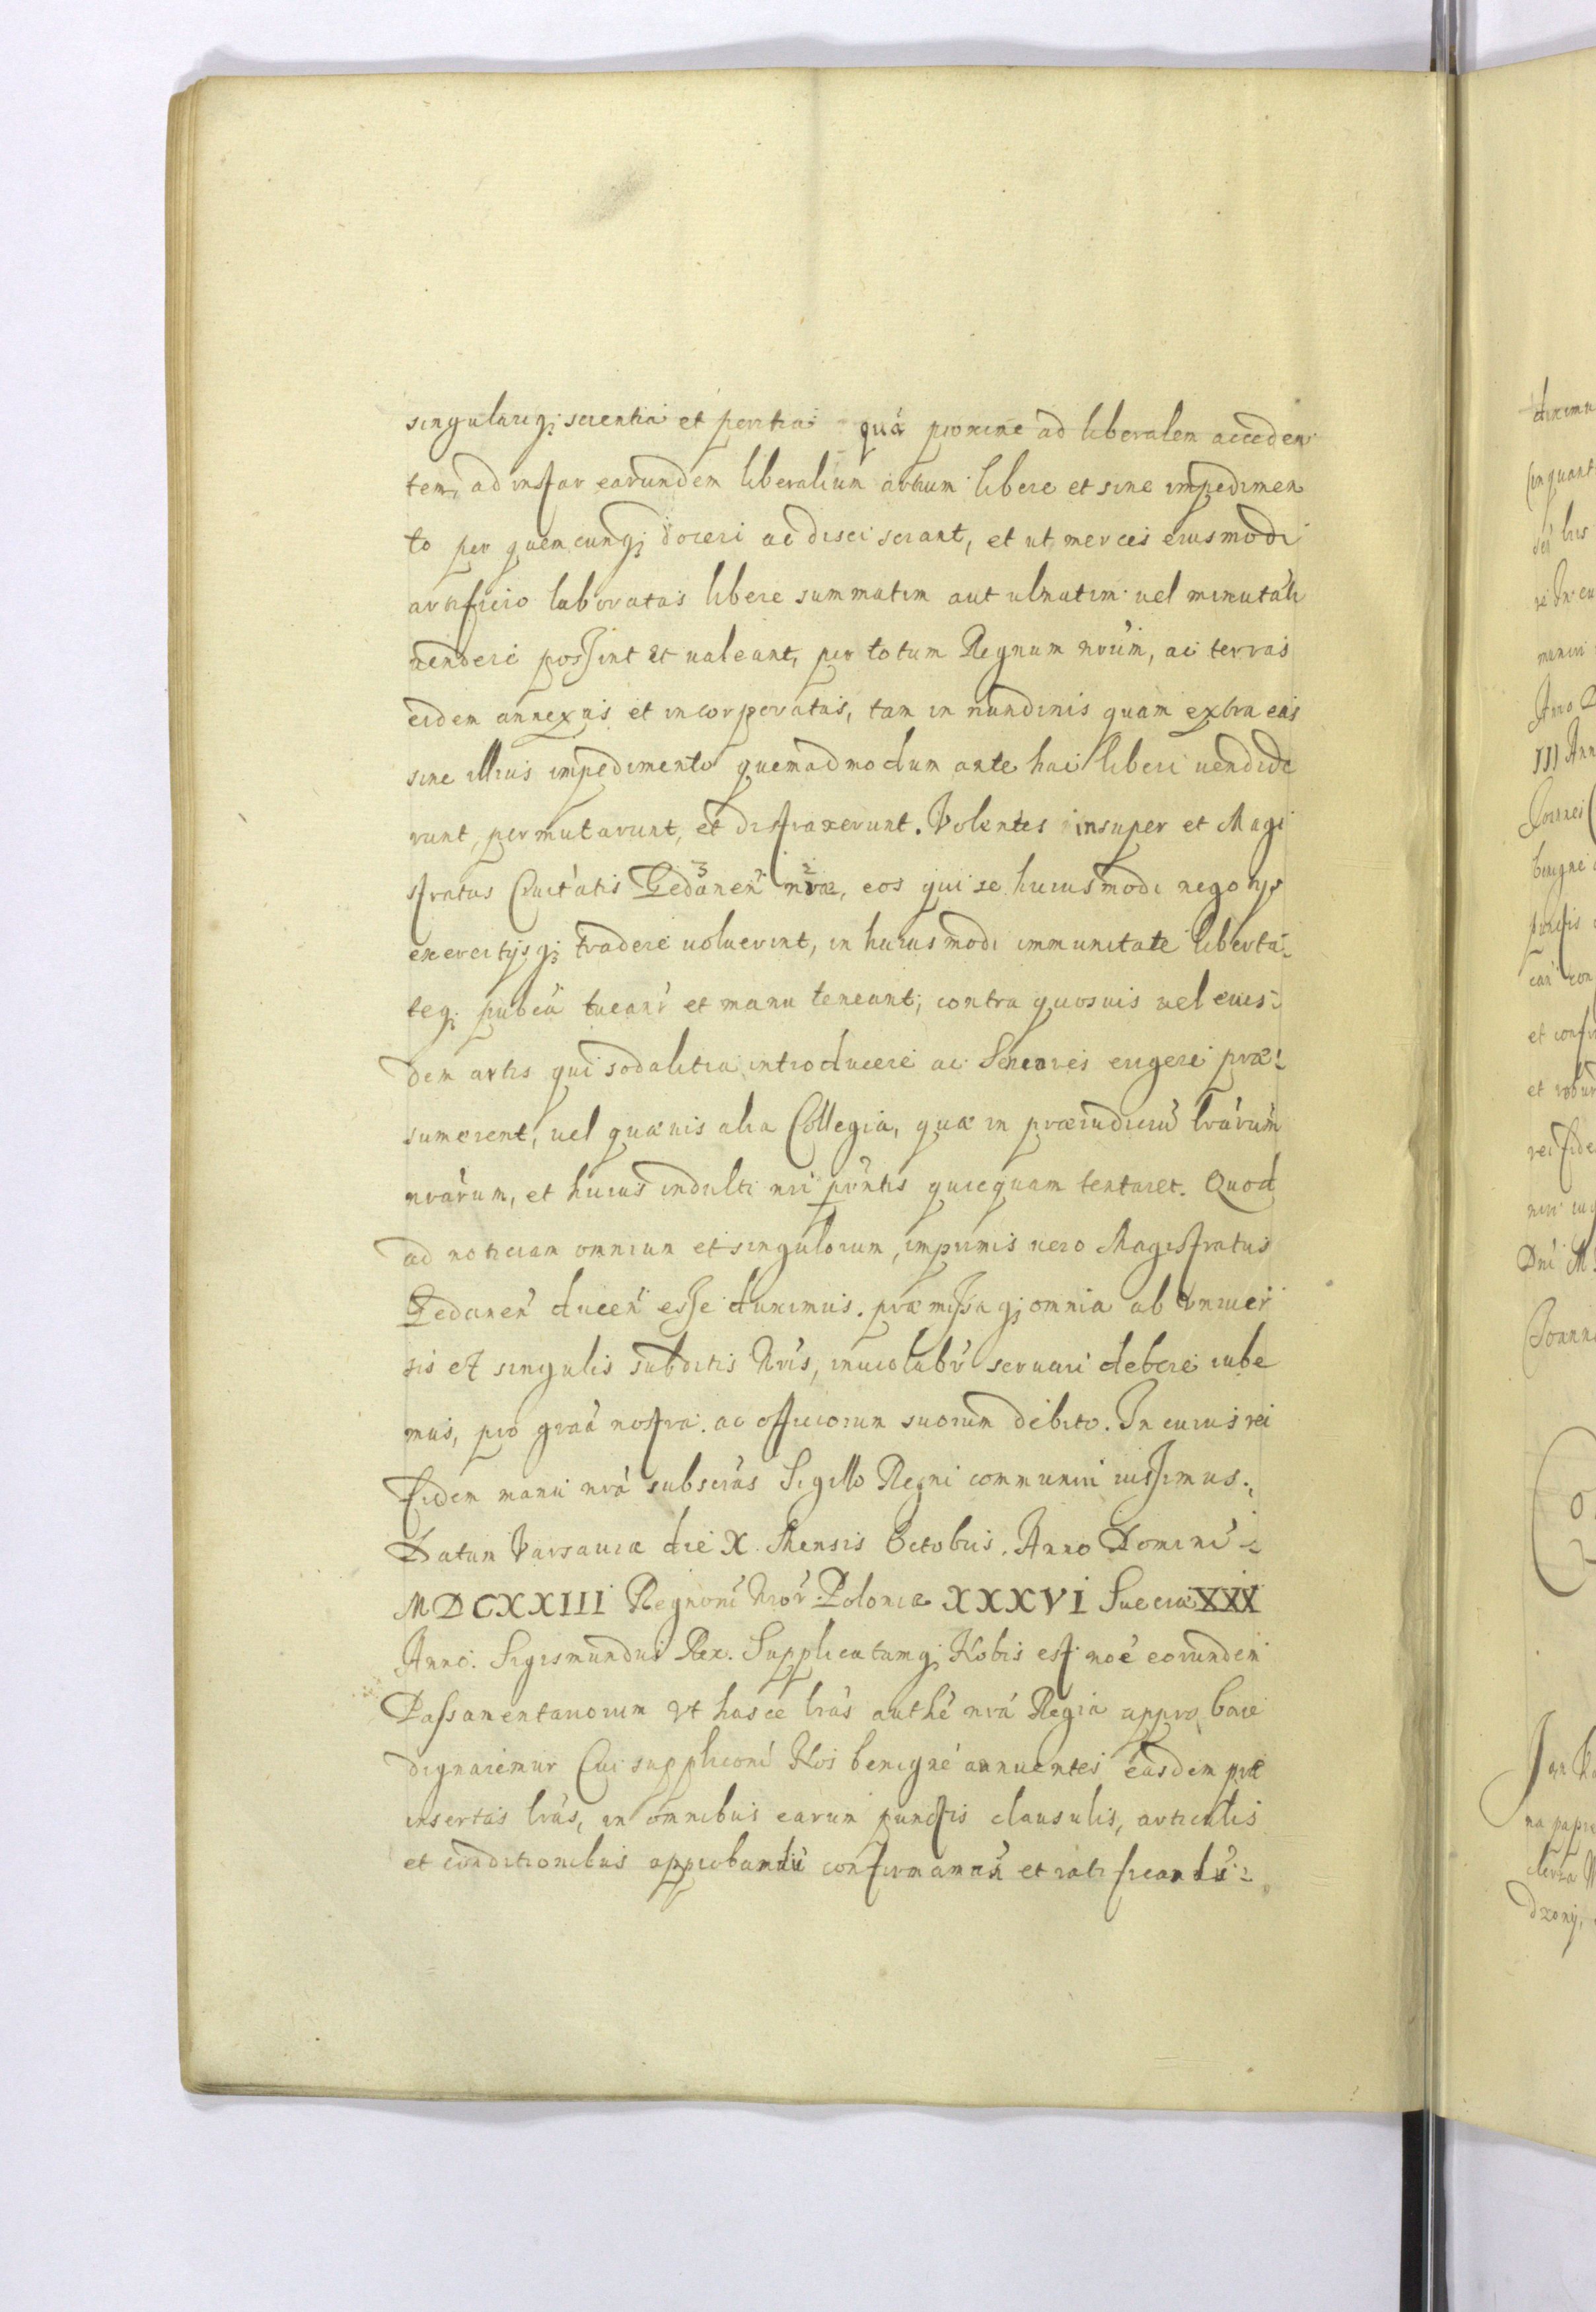 singulariq; scientia et peritia quá proxine ad liberalem acceden
tem, ad instar earundem liberalium artium libere et sine impedimen
to per quemcunq; doceri ac disci sciant, et ut merces eiusmodi
artificio laboratas libere summatim aut ulnatim uel minutati
uendere possint et ualeant, per totum Regnum nrum, ac terras
eidem annexas et incorporatas, tam in nundinis quam extra eas
sine illius impedimento quemadmodum ante hac liberi uendide
runt, permutarunt, et distraxerunt. Volentes insuper et Magi
stratus Ciuitatis Gedanen nrae, eos qui se huiusmodi negotys
exercitijsq; tradere uoluerint, in huiusmodi immunitate liberta-
teq; pubca tueanr et manu teneant; contra quosuis uel eius-
dem artis qui sodalitia introducere ac Seniores erigere prae-
sumerent, uel quaeuis alia Collegia, quae in praeiudiciu lrarum
nrarum, et huius indulti nri pntis quicquam tentaret. Quod
ad noticiam omnium et singulorum, imprimis uero Magistratus
Gedanen ducen esse duximus. praemissaq; omnia ab vniuer
sis et singulis subditis Nris, inuiolabr seruari debere iube
mus, pro graa nostra ac officiorum suorum debito. In cuius rei
fidem manu nra subscras Sigillo Regni communiri iussimus.
Datum Varsauiae die X. Mensis Octobris. Anno Domini
MDCXXIII Regnoru Nror. Poloniae XXXVI Sueciae XXX
Anno. Sigismundus Rex. Supplicatumq; Nobis est noe eorundem
Passamentanorum vt hasce lras authe nra Regia approbare
dignaremur Cui suppliconi Nos benigne annuentes easdem prae
insertas lras, in omnibus earum punctis clausulis, articulis
et conditionibus approbandu confirmandu et ratificandu